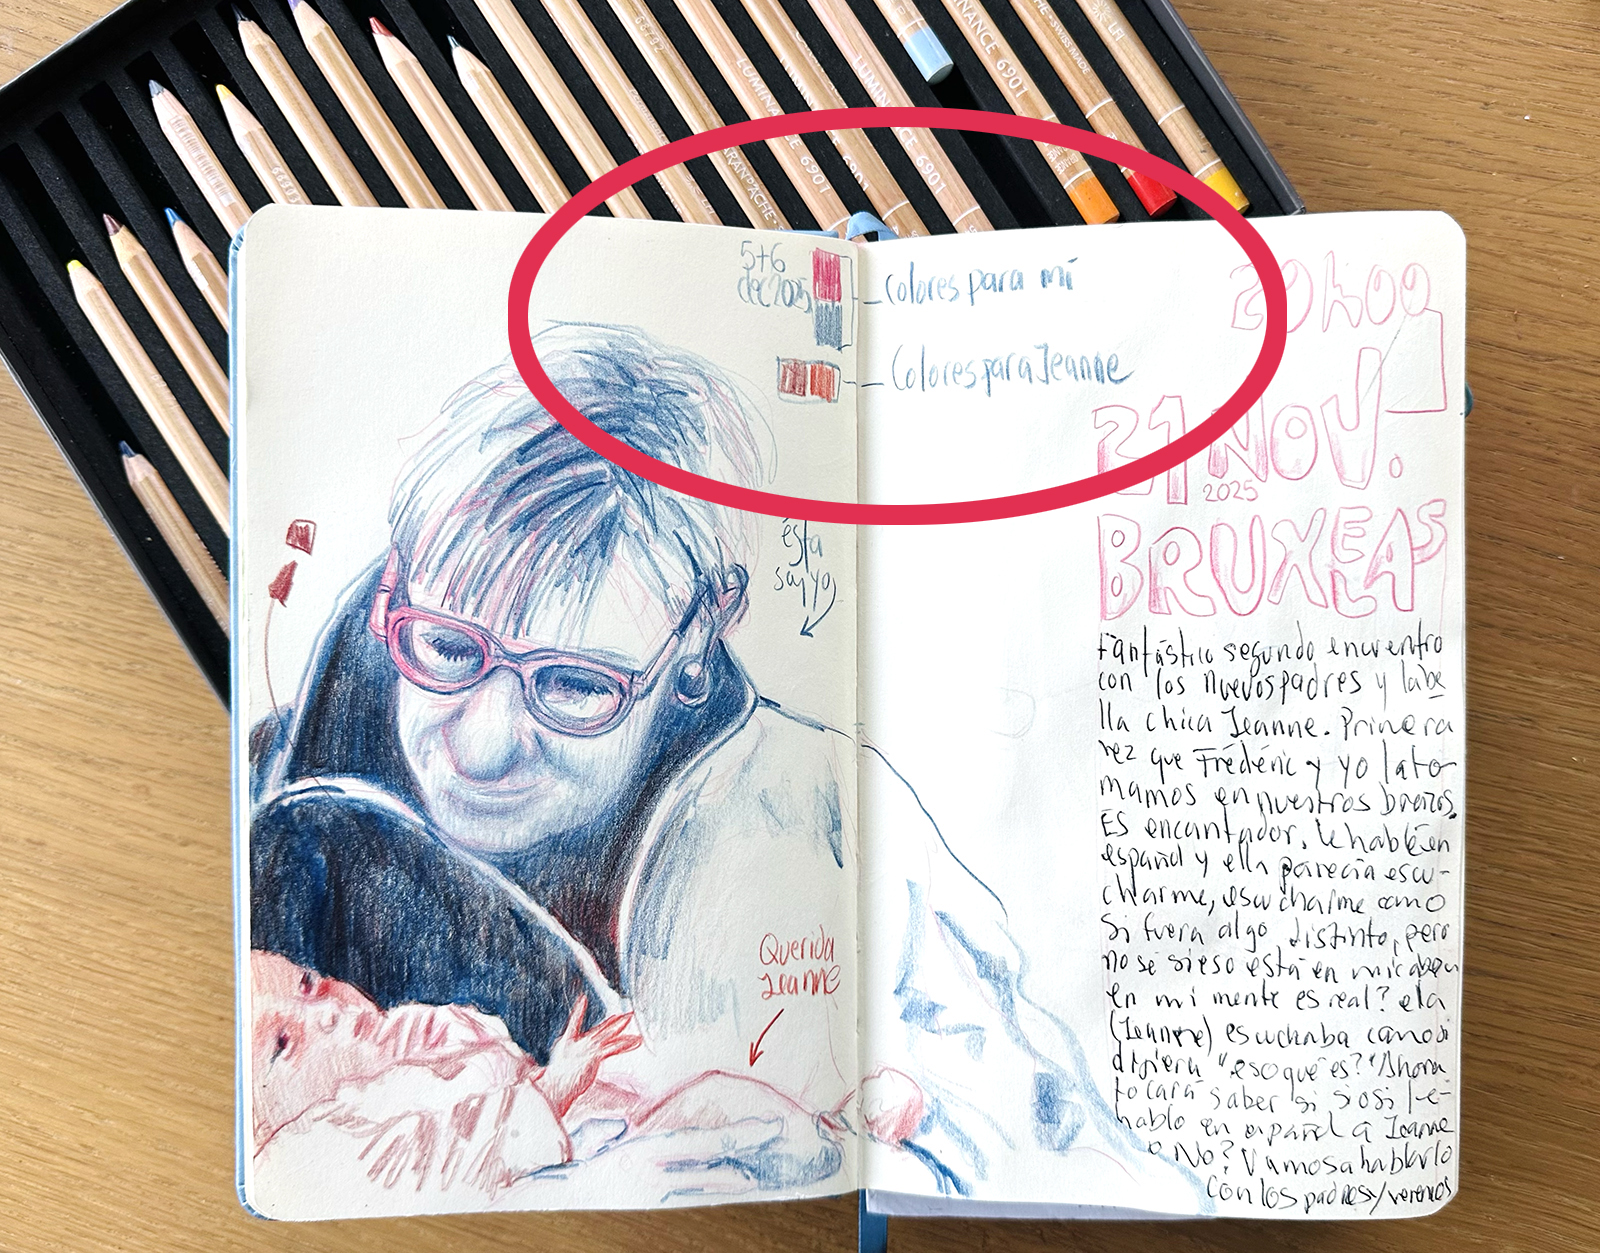 LUMINANCE 6901
LUMINANCE 6901
LUMINANCE 6901
CARAN D'ACHE
SWISS MADE
5+6
dec 2025
Colores para mí
Colores para Jeanne
ésta
soy yo
Querida
Jeanne
20h00
21 NOV.
2025
BRUXELAS
Fantástico segundo encuentro
con los nuevos padres y la be
lla chica Jeanne. Primera
vez que Frédéric y yo la to
mamos en nuestros brazos.
Es encantador. Le hablé en
español y ella parecía escu-
charme, escucharme como
si fuera algo distinto, pero
no sé si eso está en mi
en mi mente es real? ella
(Jeanne) escuchaba como si
dijiera "eso qué es?" Ahora
tocará saber si si o si le
hablo en español a Jeanne
o No? Vamos a hablarlo
con los padres y veremos